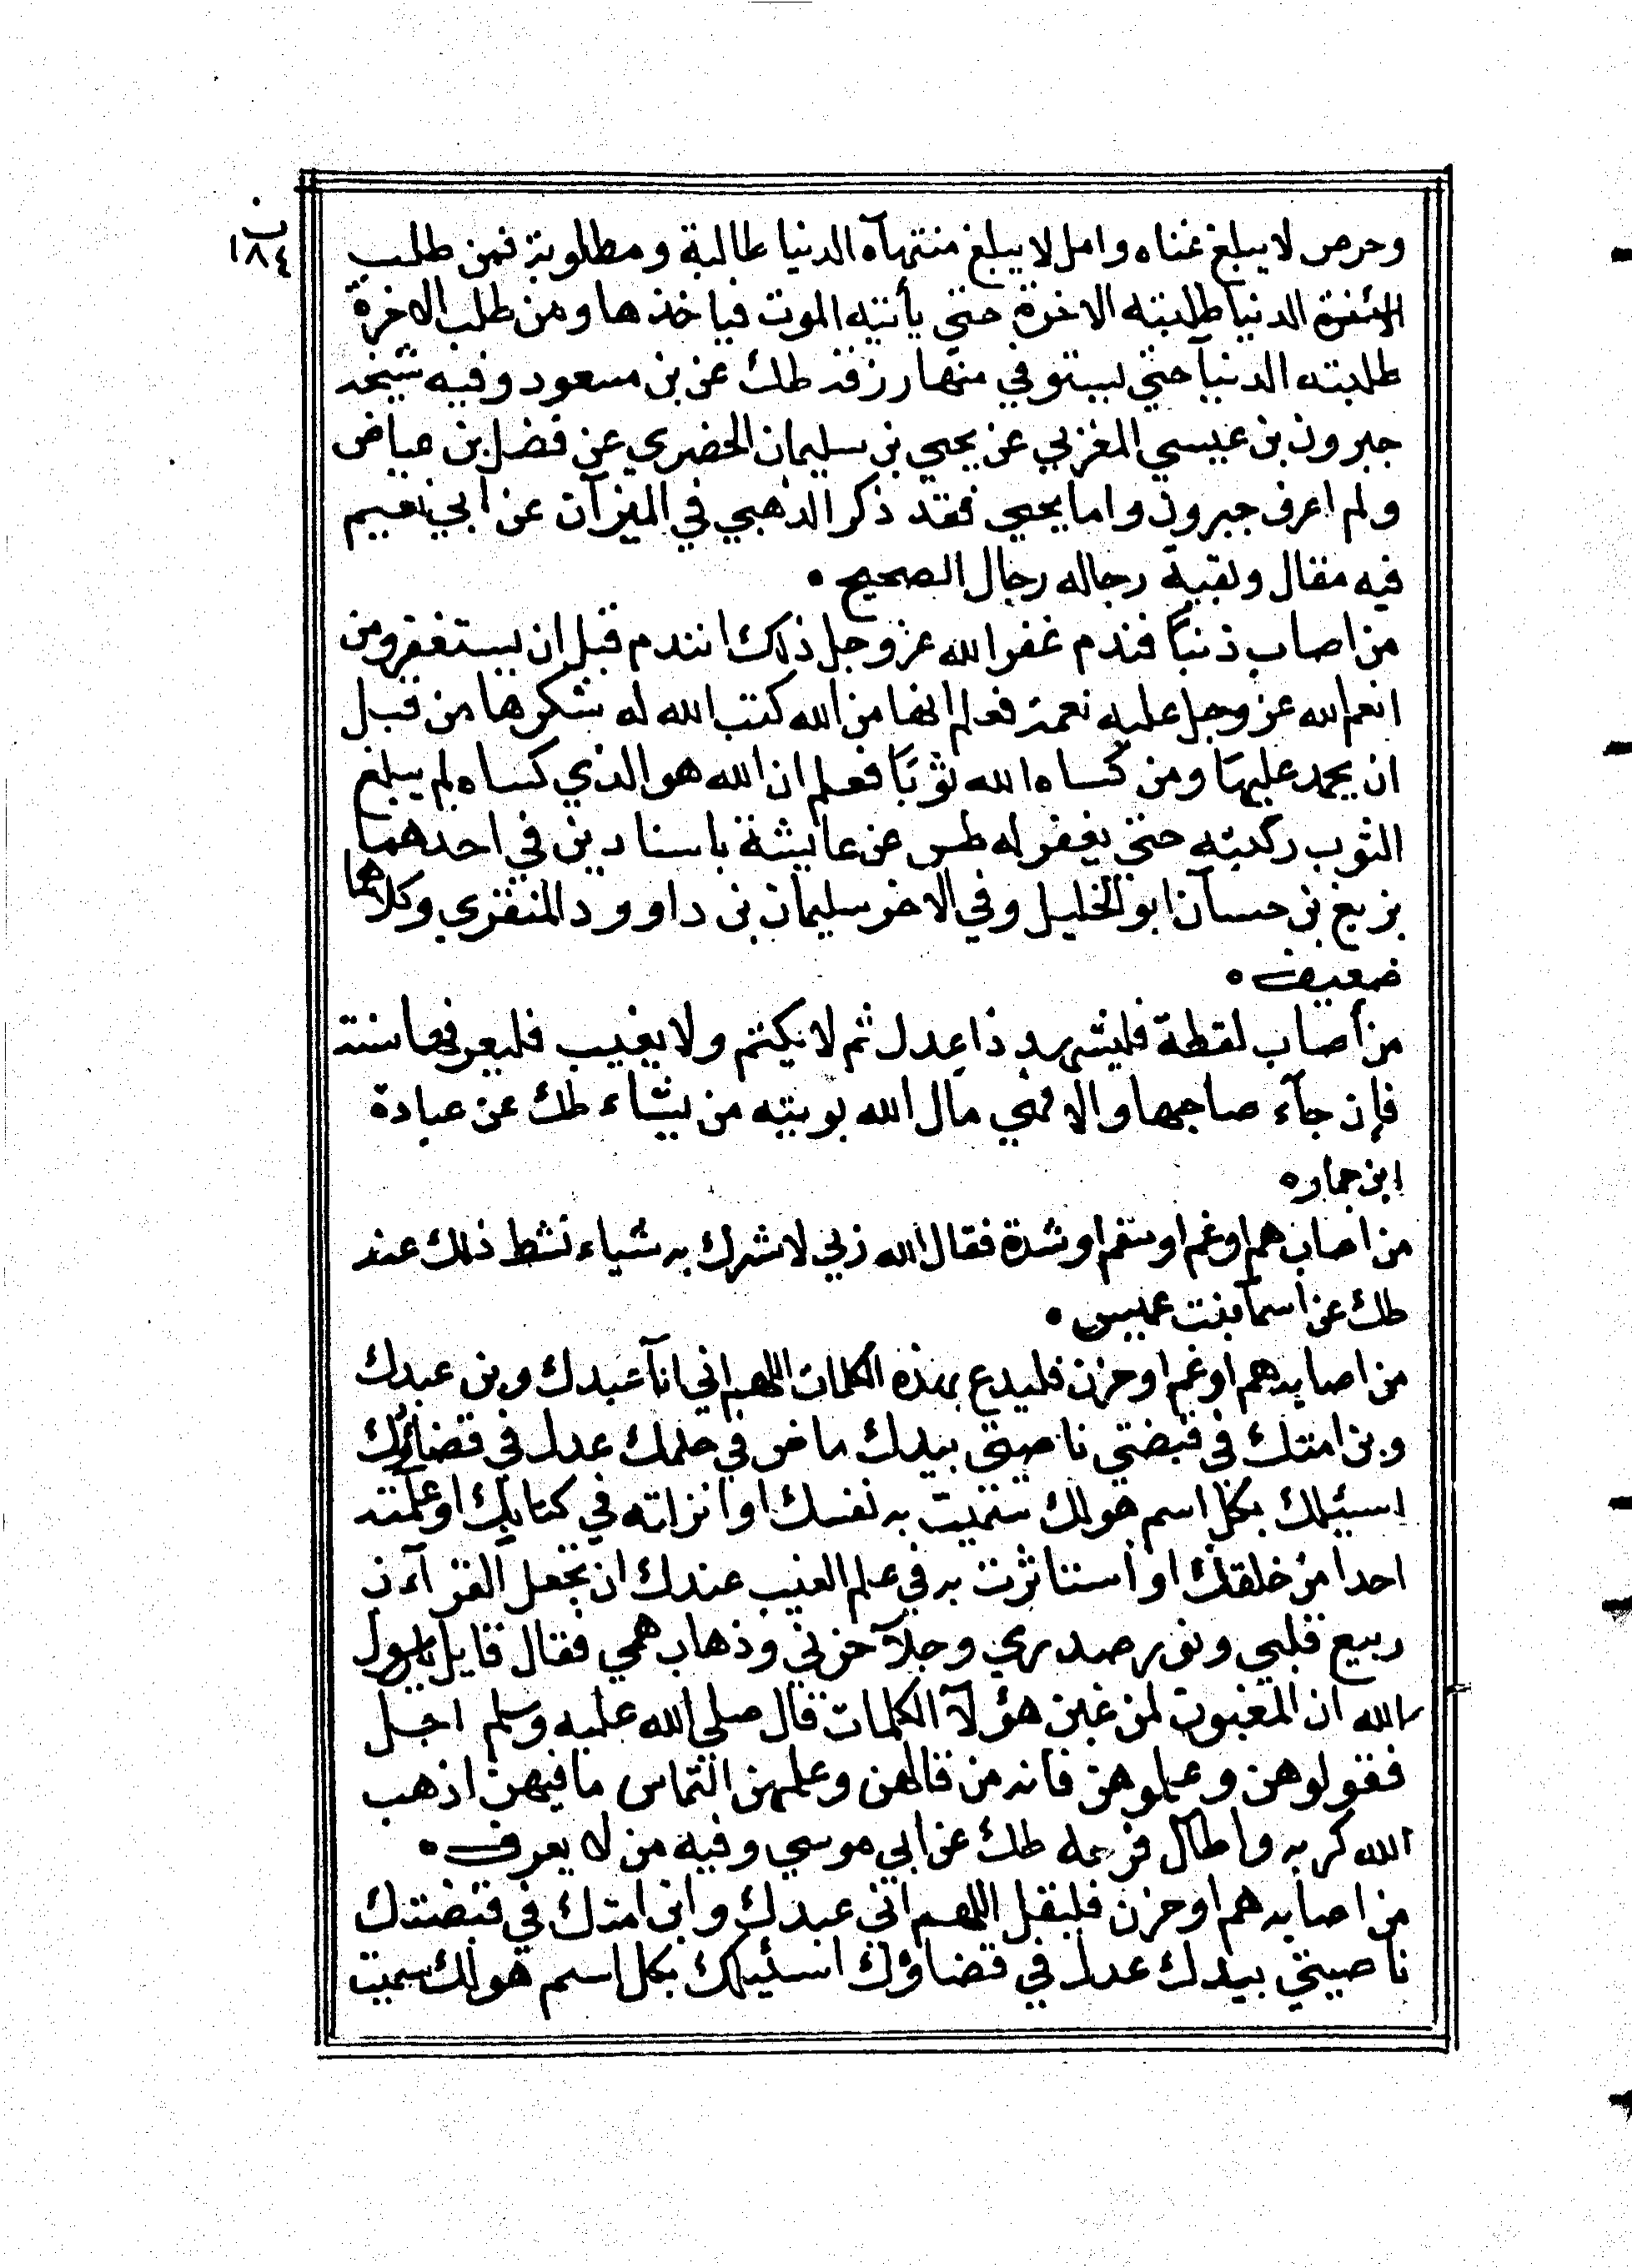 ن
١٨٤
وحرص لا يبلغ غناه وامل لا يبلغ منتهآه الدنيا طالبة ومطلوبة فمن طلب
الدنيا طلبته الاخرة حتي يأتيه الموت فياخذها ومن طلب الاخرة
طلبته الدنيآ حتي ليستوفي منها رزقه طك عن بن مسعود وفيه شيخه
جبرون بن عيسي المغربي عن يحيي بن سليمان الحضري عن فضل بن عياض
ولم اعرف جبرون واما يحيي فقد ذكر الذهبي في الميزآن عن ابي نعيم
فيه مقال وبقية رجاله رجال الصحيح ٠
من اصاب ذنبًا فندم غفر الله عز وجل ذلك اندم قبل ان يستغفر ومن
انعم الله عز وجل عليه نعمة فعلم انها من الله كتب الله له شكرها من قبل
ان يحمد عليهَا ومن كساه الله ثوبًا فعلم ان الله هو الذي كساه لم يبلغ
الثوب ركبته حتي يغفر له طس عن عايشة باسنادين في احدهما
بزيع بن حسآن ابو الخليل وفي الاخر سليمان بن داوود المنقري وكلاهما
ضعيف ٠
من أصاب لقطة فليشهد ذا عدل ثم لا يكتم ولا يغيب فليعرفها سنته
فإن جآء صاحبها والا فهي مال الله يوتيه من يشاء طك عن عبادة
ابن حمار ٠
من اصاب هم او غم او سقم او شدة فقال الله ربي لا شرك به شياء نشط ذلك عنه
طك عن اسمآ بنت عميس ٠
من اصابه هم او غم او حزن فليدع بهذه الكلمات اللهم اني انآ عبدك وبن عبدك
وبن امتك في قبضتي ناصيتي بيدك ماض في حلمك عدل في قضائك
اسئيلك بكل اسم هو لك سميت به نفسك او انزلته في كتابك او علمته
احدا من خلقك او استاثرت به في علم الغيب عندك ان تجعل القرآءن
ربيع قلبي ونور صدري وجلآ حزني وذهاب همي فقال قايل يارسول
الله ان المغبون لمن غبن هؤلآ الكلمات قال صلي الله عليه وسلم اجل
فقولوهن وعلموهن فانه من قالهن وعلمهن التماس ما فيهن اذهب
الله كربه واطال فرحه طك عن ابي موسي وفيه من لا يعرف ٠
من اصابه هم او حزن فليقل اللهم اني عبدك وابن امتك في قبضتك
ناصيتي بيدك عدل في قضاؤك اسئيلك بكل اسم هو لك سميت